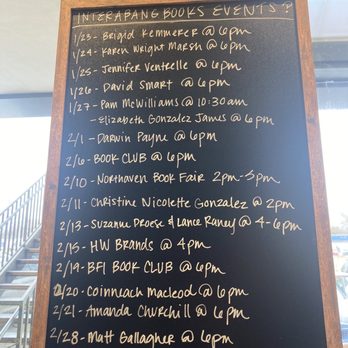 INTERABANG BOOKS EVENTS ?
1/23 - Brigid Kemmerer @ 6pm
1/24 - Karen Wright Marsh @ 6pm
1/25 - Jennifer Ventrelle @ 6pm
1/26 - David Smart @ 6pm
1/27 - Pam McWilliams @ 10:30am
- Elizabeth Gonzalez James @ 6pm
2/1 - Darwin Payne @ 6pm
2/6 - BOOK CLUB @ 6pm
2/10 - Northaven Book Fair 2pm-5pm
2/11 - Christine Nicolette Gonzalez @ 2pm
2/13 - Suzanne Droese & Lance Raney @ 4-6pm
2/15 - HW Brands @ 4pm
2/19 - BFI BOOK CLUB @ 6pm
2/20 - Coinneach Macleod @ 6pm
2/21 - Amanda Churchill @ 6pm
2/28 - Matt Gallagher @ 6pm